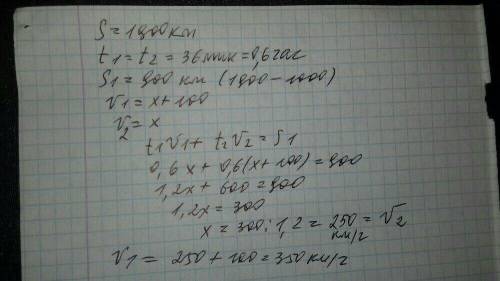 S = 1900 км
t1 = t2 = 36 мин = 0,6 час
S1 = 900 км (1900 - 1000)
V1 = x + 100
V2 = x
t1V1 + t2V2 = S1
0,6x + 0,6(x + 100) = 900
1,2x + 600 = 900
1,2x = 300
x = 300 : 1,2 = 250 км/г = V2
V1 = 250 + 100 = 350 км/г